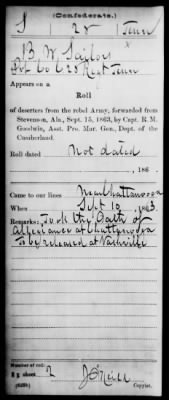 (Confederate.)
S 28 Tenn
B. W. Sailors
Co. 28 Regt Tenn
Appears on a
Roll
of deserters from the rebel Army, forwarded from
Stevenson, Ala., Sept. 15, 1863, by Capt. R. M.
Goodwin, Asst. Pro. Mar. Gen., Dept. of the
Cumberland.
Roll dated Not dated
, 186 .
Came to our lines Near Chattanooga
When Sept 10, 1863.
Remarks: Took the Oath of
Allegiance at Chattanooga
To be released at Nashville
Number of roll:
sheet 2
Copyist.